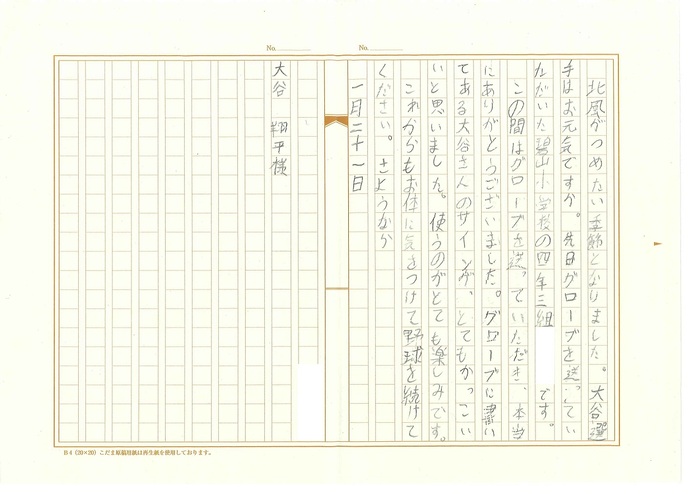 No.
No.
北風がつめたい季節となりました。大谷選
手はお元気ですか。先日グローブを送ってい
ただいた碧山小学校の四年三組
です。
この間はグローブを送っていただき、本当
にありがとうございました。グローブに書い
てある大谷さんのサインが、とてもかっこい
いと思いました。使うのがとても楽しみです。
これからもお体に気をつけて野球を続けて
ください。さようなら
一月二十一日
大谷 翔平様
B4(20×20)こだま原稿用紙は再生紙を使用しております。